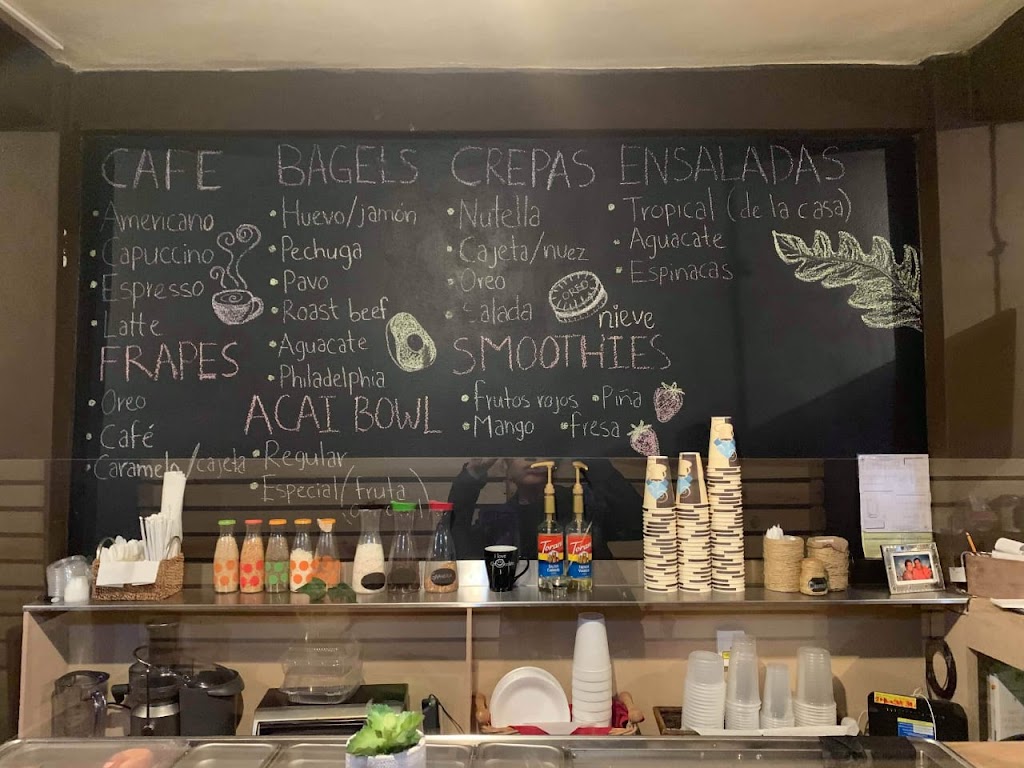 CAFE
• Americano
• Capuccino
• Espresso
• Latte
FRAPES
• Oreo
• Café
• Caramelo/cajeta
BAGELS
• Huevo/jamón
• Pechuga
• Pavo
• Roast beef
• Aguacate
• Philadelphia
ACAI BOWL
• Regular
• Especial (fruta)
CREPAS
• Nutella
• Cajeta/nuez
• Oreo
• Salada
OREO
nieve
SMOOTHIES
• Frutos rojos • Piña
• Mango • Fresa
ENSALADAS
• Tropical (de la casa)
• Aguacate
• Espinacas
I love
Torani
Torani